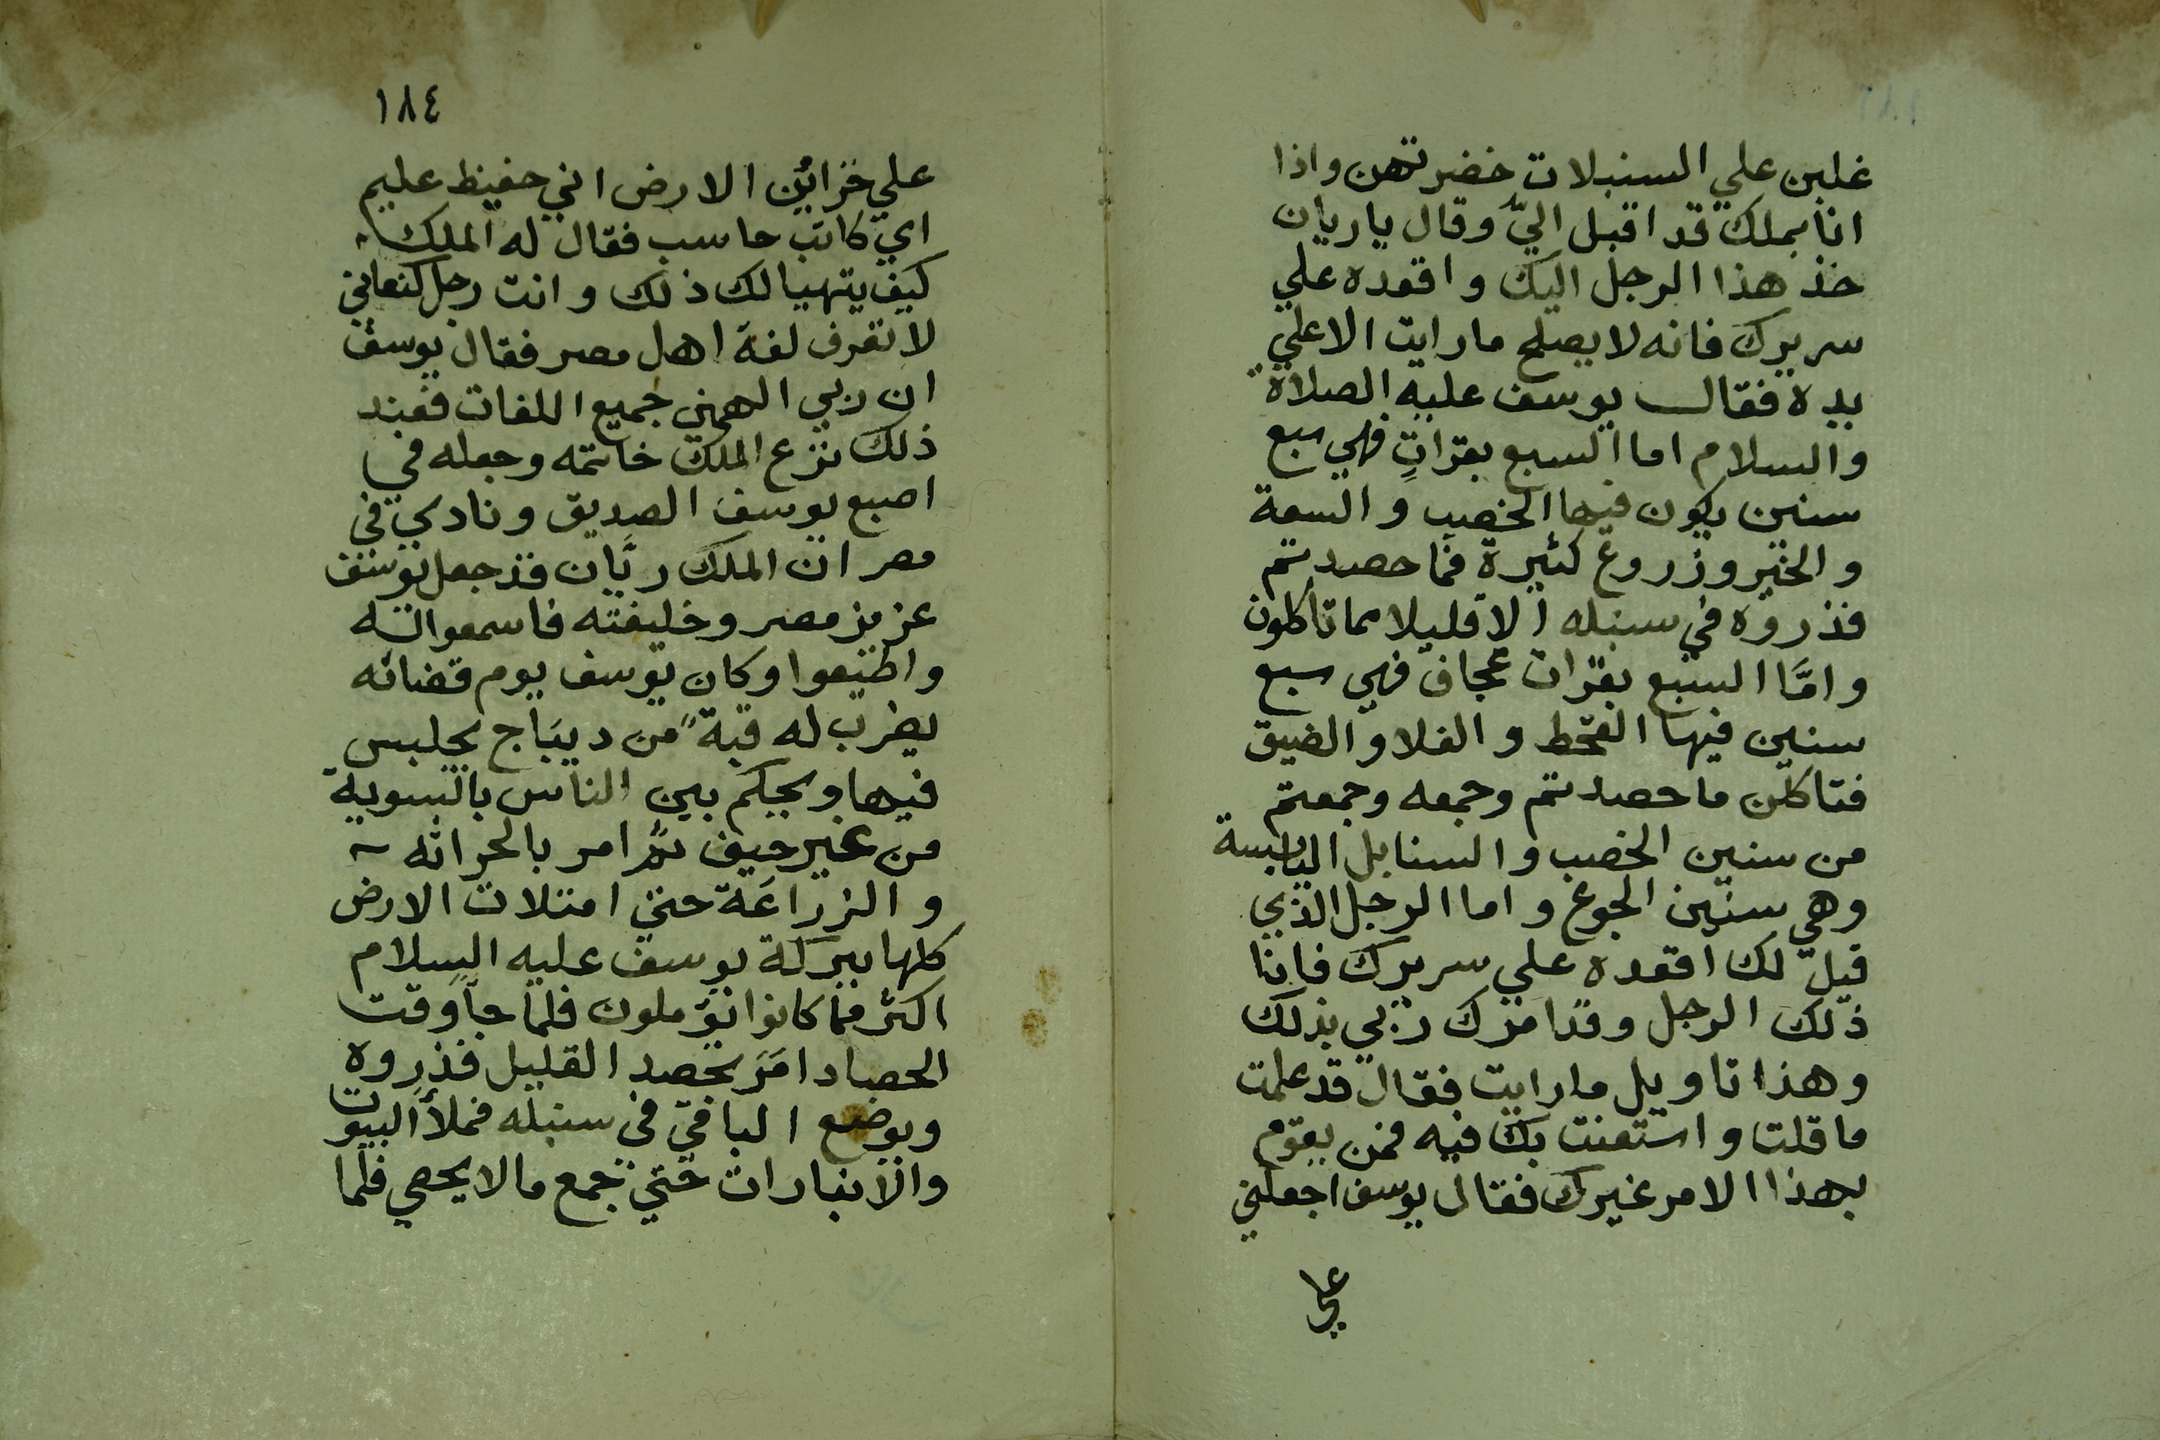 غلبن علي السنبلات خضرتهن واذا
انا بملك قد اقبل اليّ وقال ياريان
خذ هذا الرجل اليك واقعده علي
سريرك فانه لا يصلح مارايت الا علي
يده فقال يوسف عليه الصلاة
والسلام اما السبع بقراتٍ فهي سبع
سنين يكون فيها الخصب والسعة
والخير وزروع كثيرة فما حصدتم
فذروه في سنبله الا قليلا مما تأكلون
وامَّا السبع بقرات عجاف فهي سبع
سنين فيها القحط والغلا والضيق
فتاكلن ما حصدتم وجمعه وجمعتم
من سنين الخصب والسنابل اليابسة
وهي سنين الجوع واما الرجل الذي
قيل لك اقعده علي سريرك فانا
ذلك الرجل وقد امرك ربي بذلك
وهذا تاويل مارايت فقال قد علمت
ما قلت واستعنت بك فيه فمن يقوم
بهذا الامر غيرك فقال يوسف اجعلني
علي
١٨٤
علي خزائن الارض اني حفيظ عليم
اي كاتب حاسب فقال له الملك
كيف يتهيا لك ذلك وانت رجل كنعاني
لا تعرف لغة اهل مصر فقال يوسف
ان ربي الهمني جميع اللغات فعند
ذلك نزع الملك خاتمه وجعله في
اصبع يوسف الصديق ونادي في
مصر ان الملك ريَّان قد جعل يوسف
عزيز مصر وخليفته فاسمعوا له
واطيعوا وكان يوسف يوم قضائه
يضرب له قبةً من ديبَاج يجلس
فيها ويحكم بين الناس بالسوية
من غير حيف ثمَّ امر بالحراثه
والزراعَة حتي امتلات الارض
كلها ببركة يوسف عليه السلام
اكثر مما كانوا يؤملون فلما جآ وقت
الحصاد امَرَ بحصد القليل فذروه
وبوضع الباقي في سنبله فملأ البيوت
والانبارات حتي جمع مالا يحصي فلما